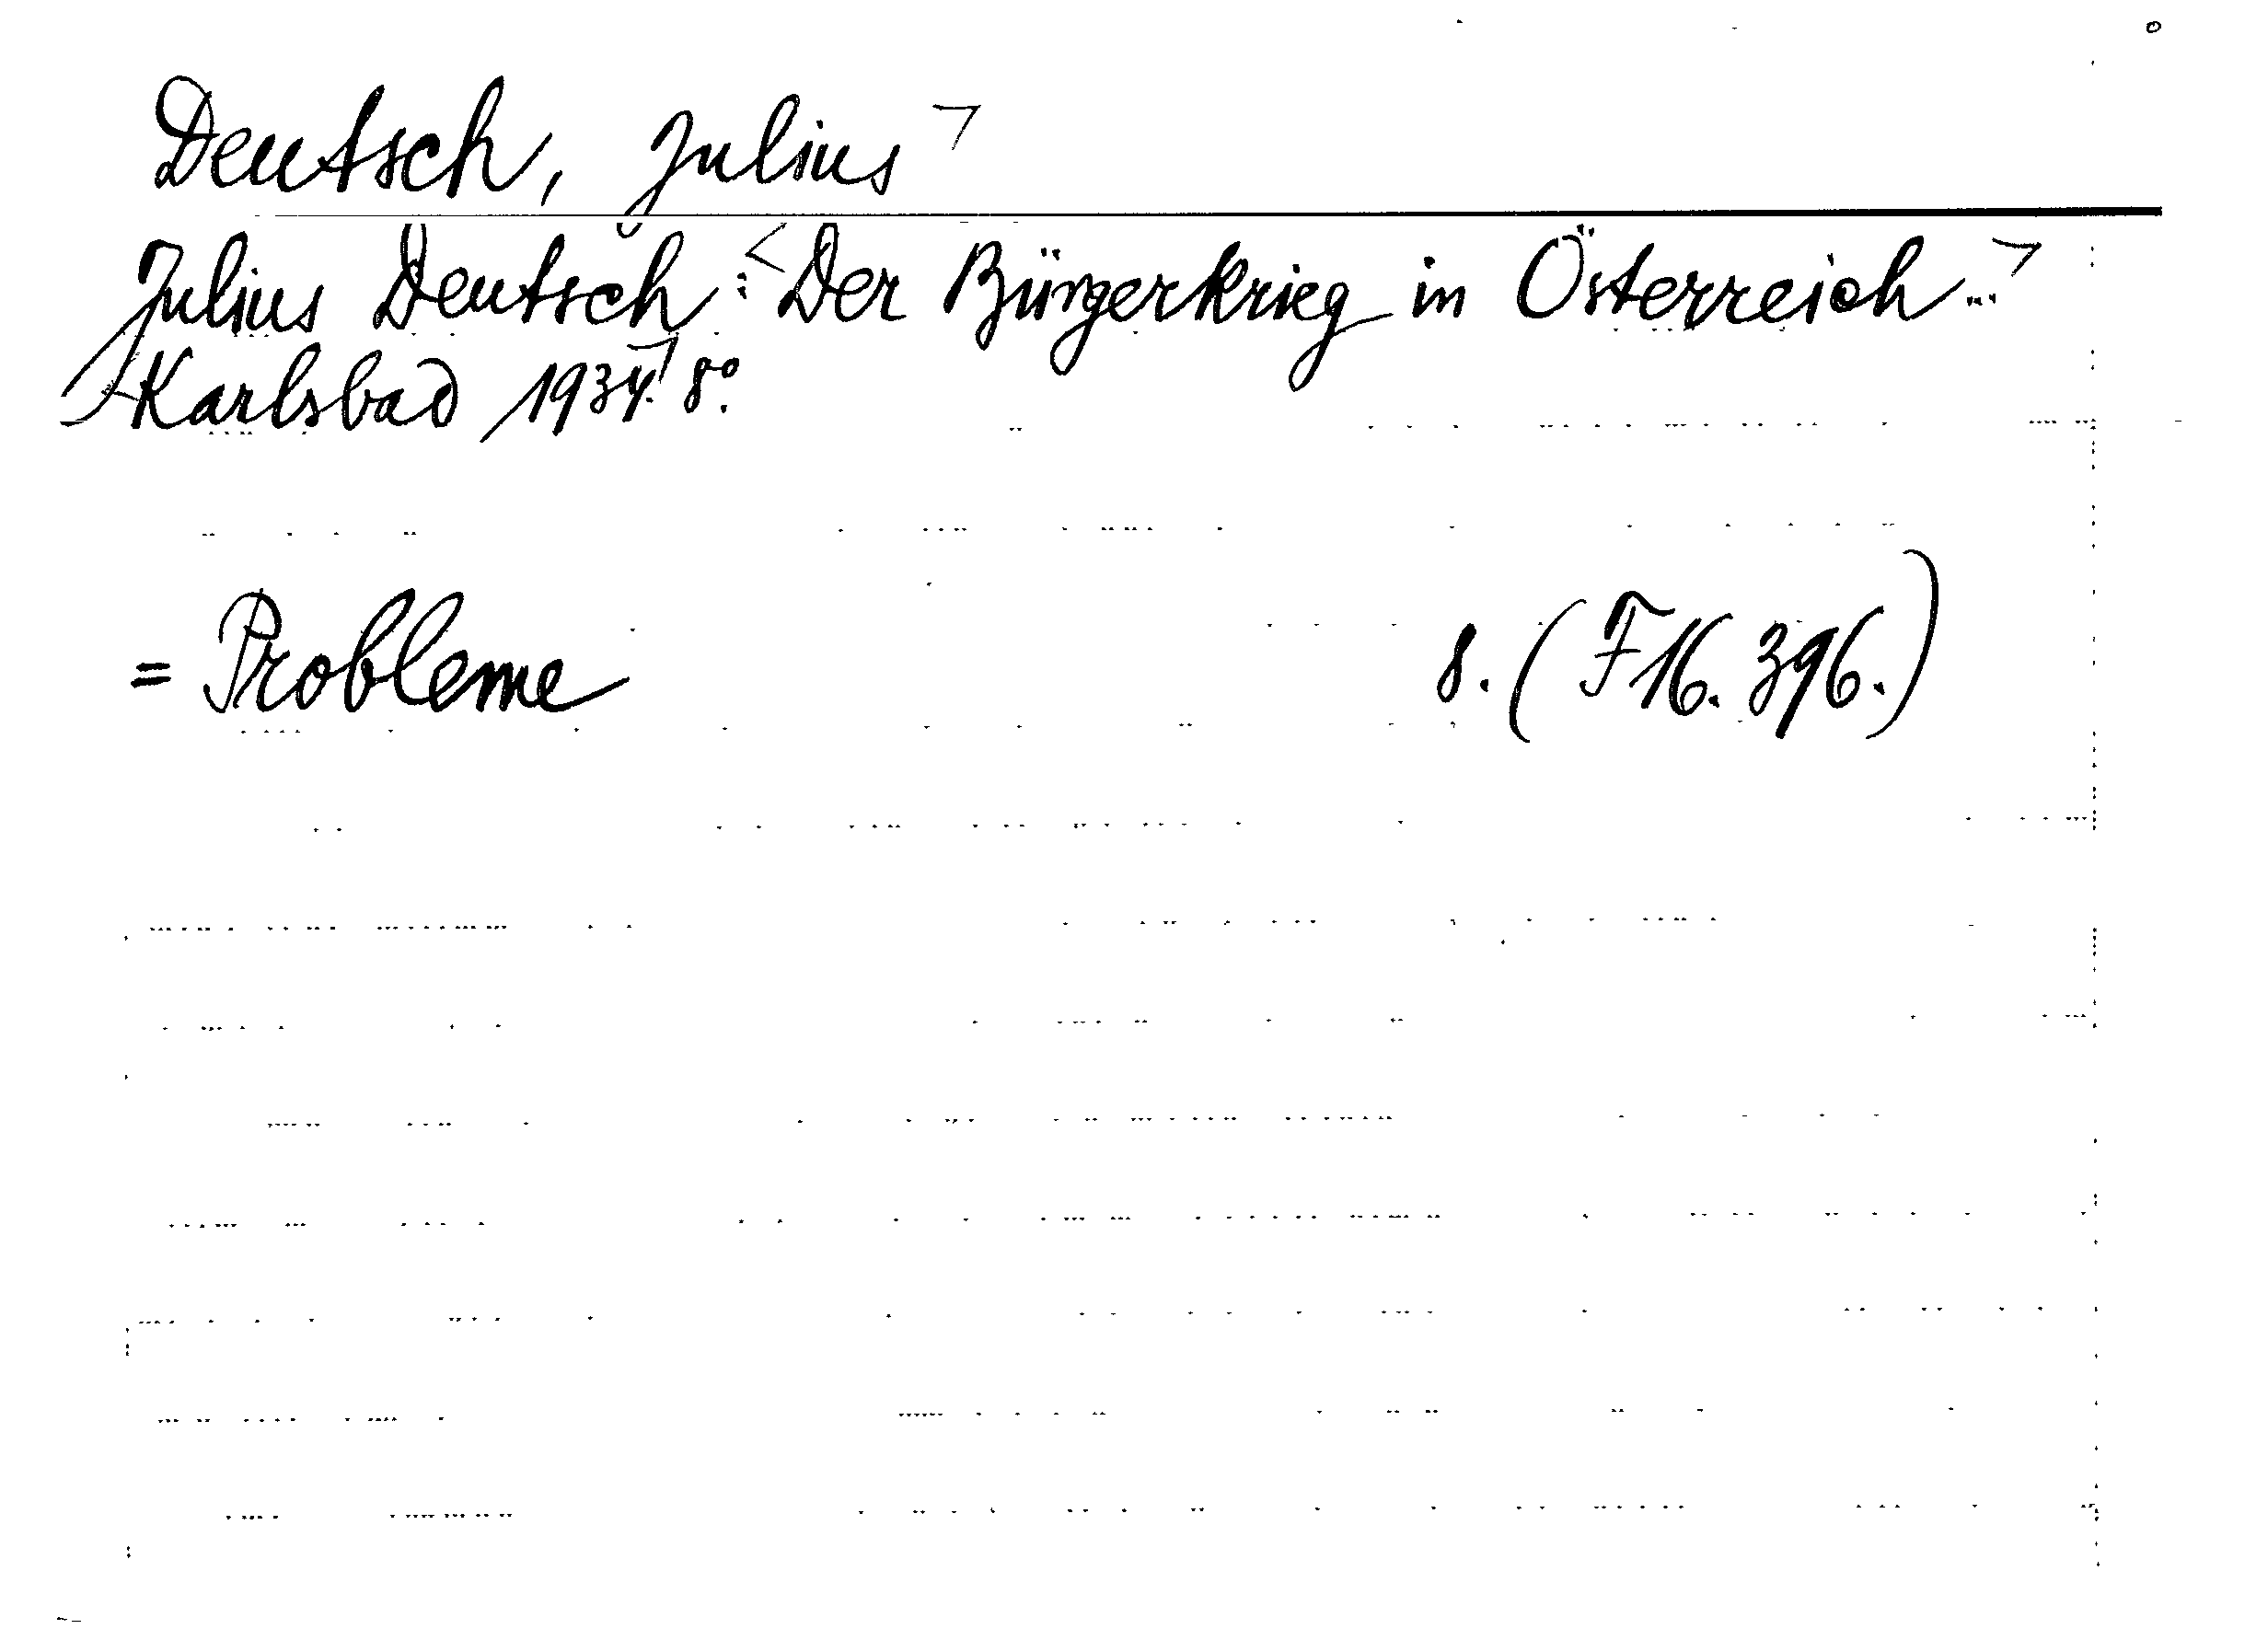 Deutsch, Julius
Julius Deutsch: Der Bürgerkrieg in Österreich...
Karlsbad 1934. 8°.
= Probleme 8. (F16. 396.)